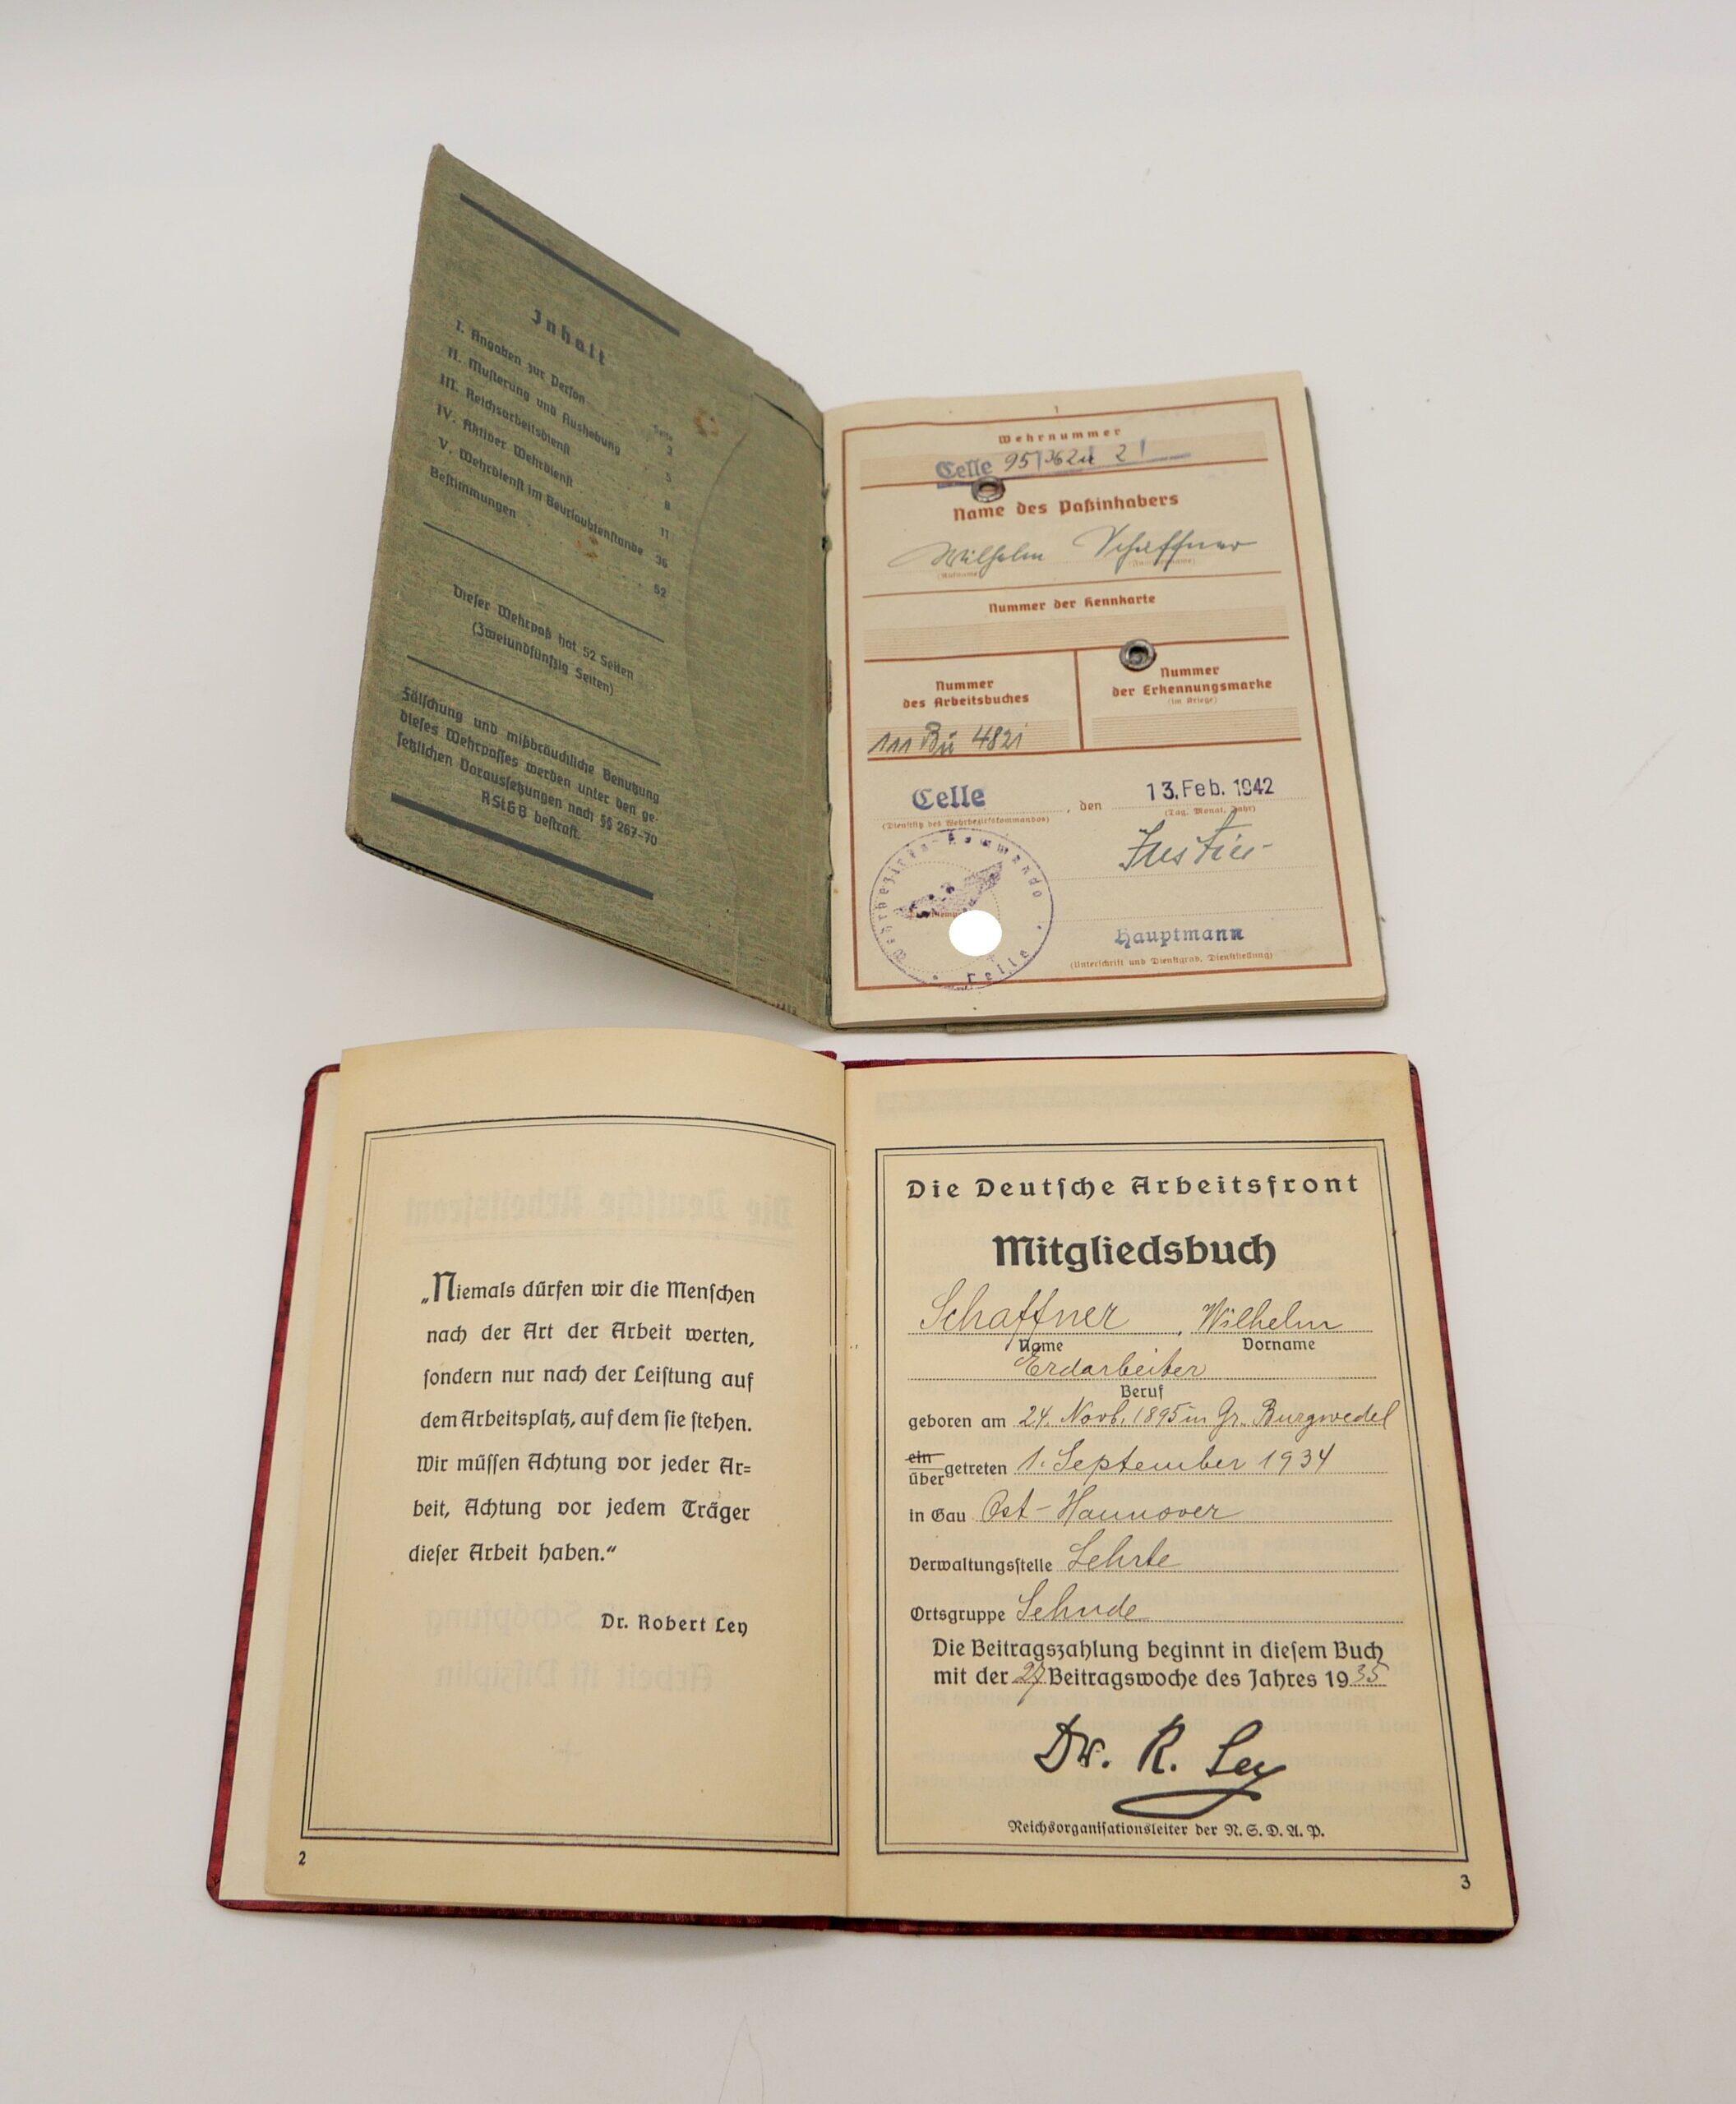 Inhalt
Seite
I. Angaben zur Person 3
II. Musterung und Aushebung 5
III. Reichsarbeitsdienst 8
IV. Aktiver Wehrdienst 11
V. Wehrdienst im Beurlaubtenstande 36
Bestimmungen 52
Dieser Wehrpaß hat 52 Seiten
(Zweiundfünfzig Seiten)
Fälschung und mißbräuchliche Benutzung
dieses Wehrpasses werden unter den ge-
setzlichen Voraussetzungen nach §§ 267-70
RStGB bestraft.
1
Wehrnummer
Celle 95
Name des Paßinhabers
Wilhelm Schaffner
Nummer der Kennkarte
Nummer
des Arbeitsbuches
Nummer
der Erkennungsmarke
(im Kriege)
111 Bü 482i
Celle, den 13. Feb. 1942
(Dienstsitz des Wehrbezirkskommandos) (Tag, Monat, Jahr)
Wehrbezirks-Kommando
Celle
Hauptmann
(Unterschrift und Dienstgrad, Dienststellung)
„Niemals dürfen wir die Menschen
nach der Art der Arbeit werten,
sondern nur nach der Leistung auf
dem Arbeitsplatz, auf dem sie stehen.
Wir müssen Achtung vor jeder Ar=
beit, Achtung vor jedem Träger
dieser Arbeit haben.“
Dr. Robert Ley
2
Die Deutsche Arbeitsfront
Mitgliedsbuch
Schaffner, Wilhelm
Name Vorname
Erdarbeiter
Beruf
geboren am 24. Novb. 1895 in Gr. Burgwedel
ein
übergetreten 1. September 1934
in Gau Ost-Hannover
Verwaltungsstelle Lehrte
Ortsgruppe Sehnde
Die Beitragszahlung beginnt in diesem Buch
mit der 27 Beitragswoche des Jahres 1935
Dr. R. Ley
Reichsorganisationsleiter der N.S.D.A.P.
3